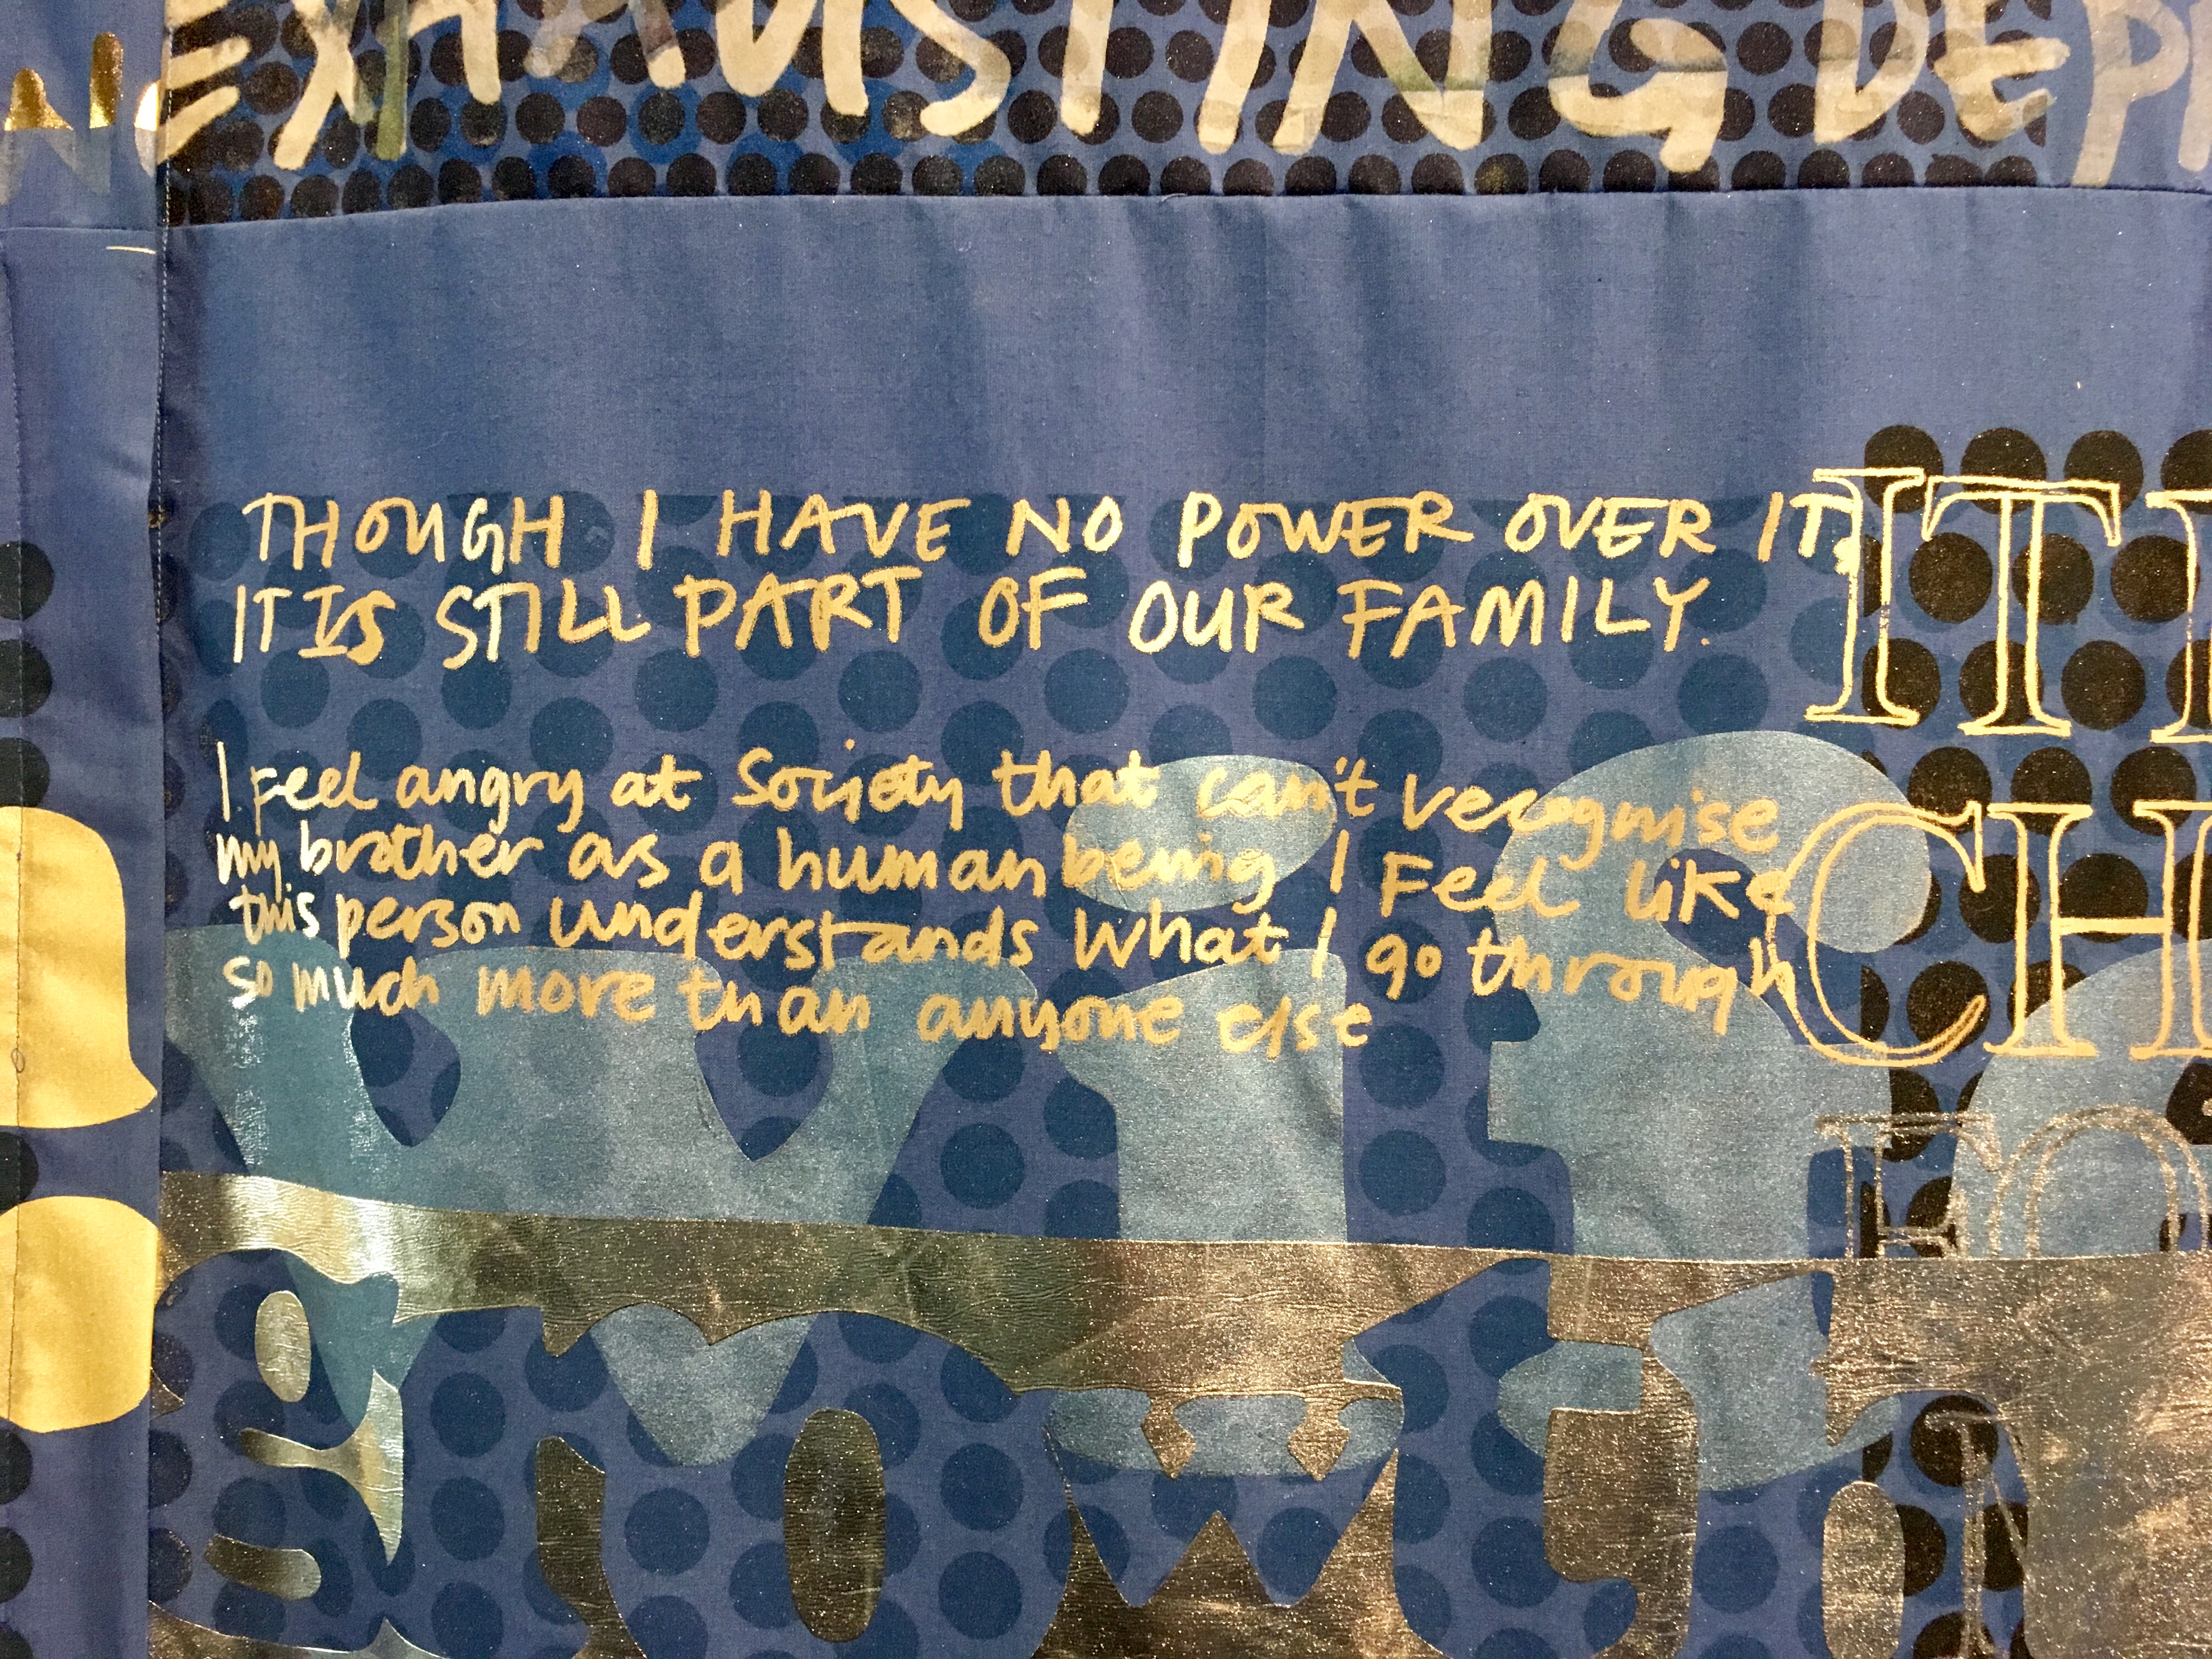 EXHAUSTING DEP
THOUGH I HAVE NO POWER OVER IT,
IT IS STILL PART OF OUR FAMILY.
I feel angry at Society that can't recognise
my brother as a human being I Feel like
this person understands What I go through
so much more than anyone else
IT
CH
growth